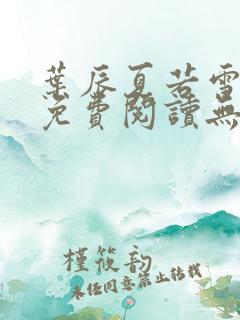 葉辰夏若雪
免費閱讀無
槿筱韵
未经同意禁止转载